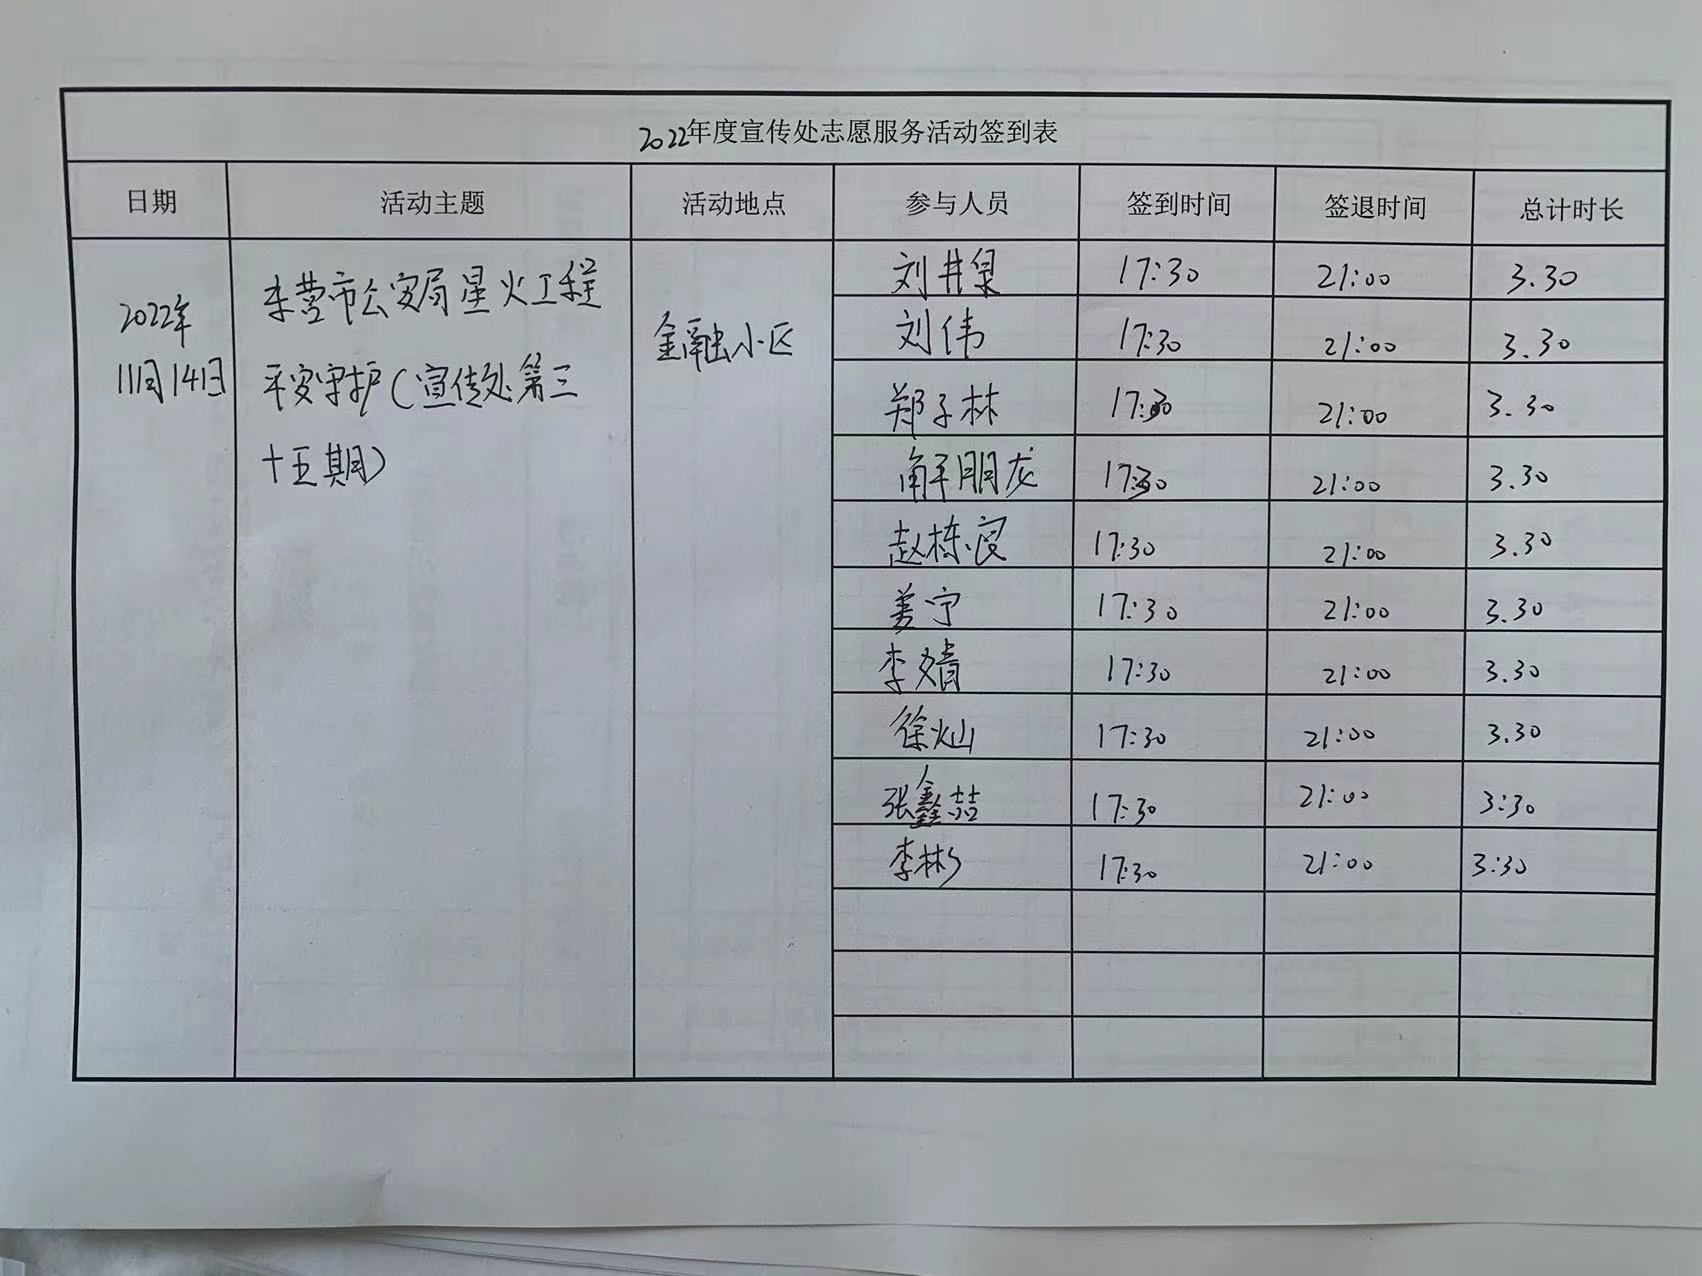 2022年度宣传处志愿服务活动签到表
日期 活动主题 活动地点 参与人员 签到时间 签退时间 总计时长
2022年
11月14日
东营市公安局星火工程
平安守护(宣传处第三
十五期)
金融小区
刘井泉 17:30 21:00 3.30
刘伟 17:30 21:00 3.30
郑子林 17:30 21:00 3.30
解朋龙 17:30 21:00 3.30
赵栋良 17:30 21:00 3.30
姜宁 17:30 21:00 3.30
李婧 17:30 21:00 3.30
徐灿 17:30 21:00 3.30
张鑫喆 17:30 21:00 3:30
李彬 17:30 21:00 3:30